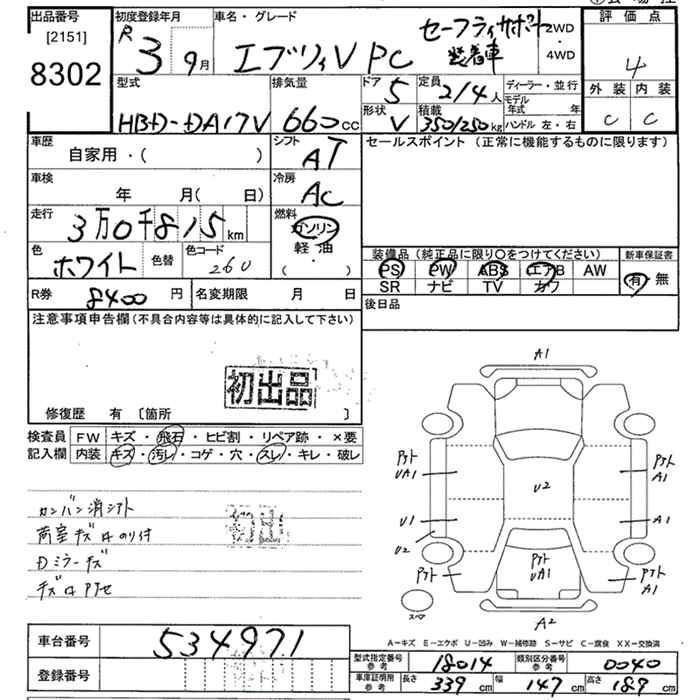 出品番号
[2151]
8302
初度登録年月
R 3 9月
車名・グレード
エブリィV PC
セーフティサポート
装着車
2WD
・
4WD
評価点
4
外装 内装
C C
型式
HBD-DA17V
排気量
660cc
ドア 5
形状 V
定員 2/4人
積載 350/250kg
ディーラー・並行
モデル
年式 年
ハンドル 左・右
車歴
自家用・( )
シフト
AT
セールスポイント (正常に機能するものに限ります)
車検
年 月( 日)
冷房
AC
走行
3万0千815km
燃料
ガソリン
・
軽油
・
( )
色
ホワイト
色替
色コード
260
装備品 (純正品に限り○をつけてください)
PS PW ABS エアB AW
SR ナビ TV カワ
新車保証書
有・無
R券 8400円
名変期限 月 日
後日品
注意事項申告欄 (不具合内容等は具体的に記入して下さい)
初出品
修復歴 有 〔箇所 〕
検査員
記入欄
FW キズ・飛石・ヒビ割・リペア跡・×要
内装 キズ・汚レ・コゲ・穴・スレ・キレ・破レ
カンバン消シアト
荷室キズロのり付
Dミラーキズ
初出
A1
アト
UA1
U1
U2
U2
アト
A1
A1
アト
アト
UA1
アト
A1
スペア
A2
A-キズ E-エクボ U-凹み W-補修跡 S-サビ C-腐食 XX-交換済
車台番号 534971
登録番号
型式指定番号
参考
18014
類別区分番号
参考
0040
車庫証明用
参考
長さ 339cm 幅 147cm 高さ 189cm